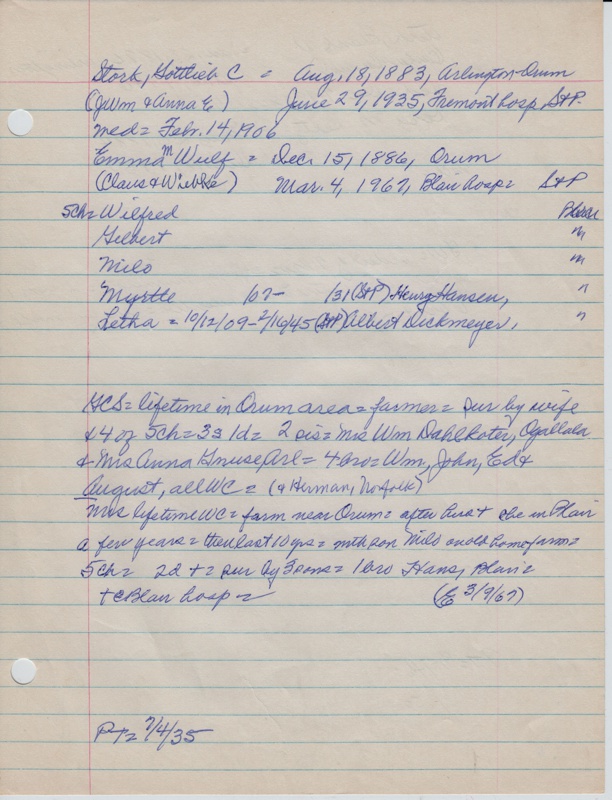 Stork, Gottlieb C = Aug, 18, 1883, Arlington-Orum
(JWm & Anna E) June 29, 1935, Fremont hosp, S+P.
Med= Febr. 14, 1906
Emma M Wulf = Dec. 15, 1886, Orum
(Claus & Wiebke) Mar. 4, 1967, Blair hosp= S+P
5ch= Wilfred Blair
Gilbert "
Milo "
Myrtle /07- /31 (S+P) Henry Hansen, "
Letha = 10/12/09-2/16/45 (S+P) Albert Dickmeyer, "
GCS= lifetime in Orum area= farmer= sur by wife
& 4 of 5ch= 3s 1d= 2 sis= Mrs Wm Dahlkoter, Ogallala
& Mrs Anna Gnuse, Arl= 4bro= Wm, John, Ed &
August, all WC= (& Herman, Norfolk)
Mrs lifetime WC= farm near Orum= after hus + she in Blair
a few years= then last 10 yrs= with son Milo on old homefarm=
5ch= 2d += sur by 3 sons= 1 bro Hans, Blair=
+ Blair hosp= (E 3/9/67)
PT= 7/4/35